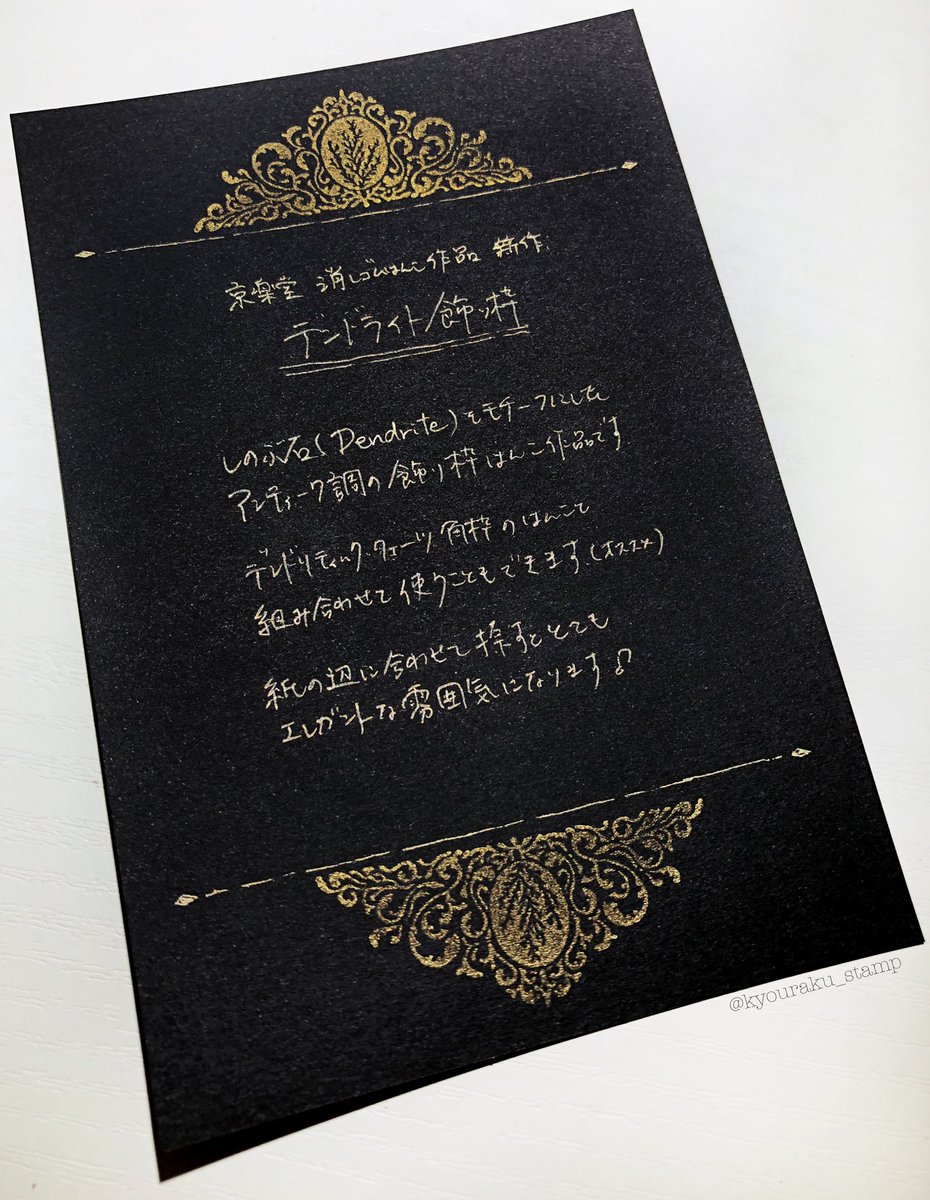 京楽堂 消しゴムはんこ作品 新作
デンドライト飾り枠
しのぶ石(Dendrite)をモチーフにした
アンティーク調の飾り枠はんこ作品です
デンドリティック・クォーツ角枠のはんこと
組み合わせて使うこともできます(オススメ)
紙の辺に合わせて捺すととても
エレガントな雰囲気になります♪
@kyouraku_stamp